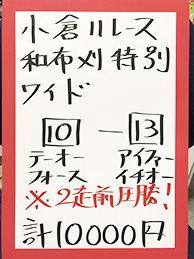 小倉11レース
和布刈特別
ワイド
10 — 13
テーオー アイファー
フォース イチオー
※2走前圧勝!
計10000円